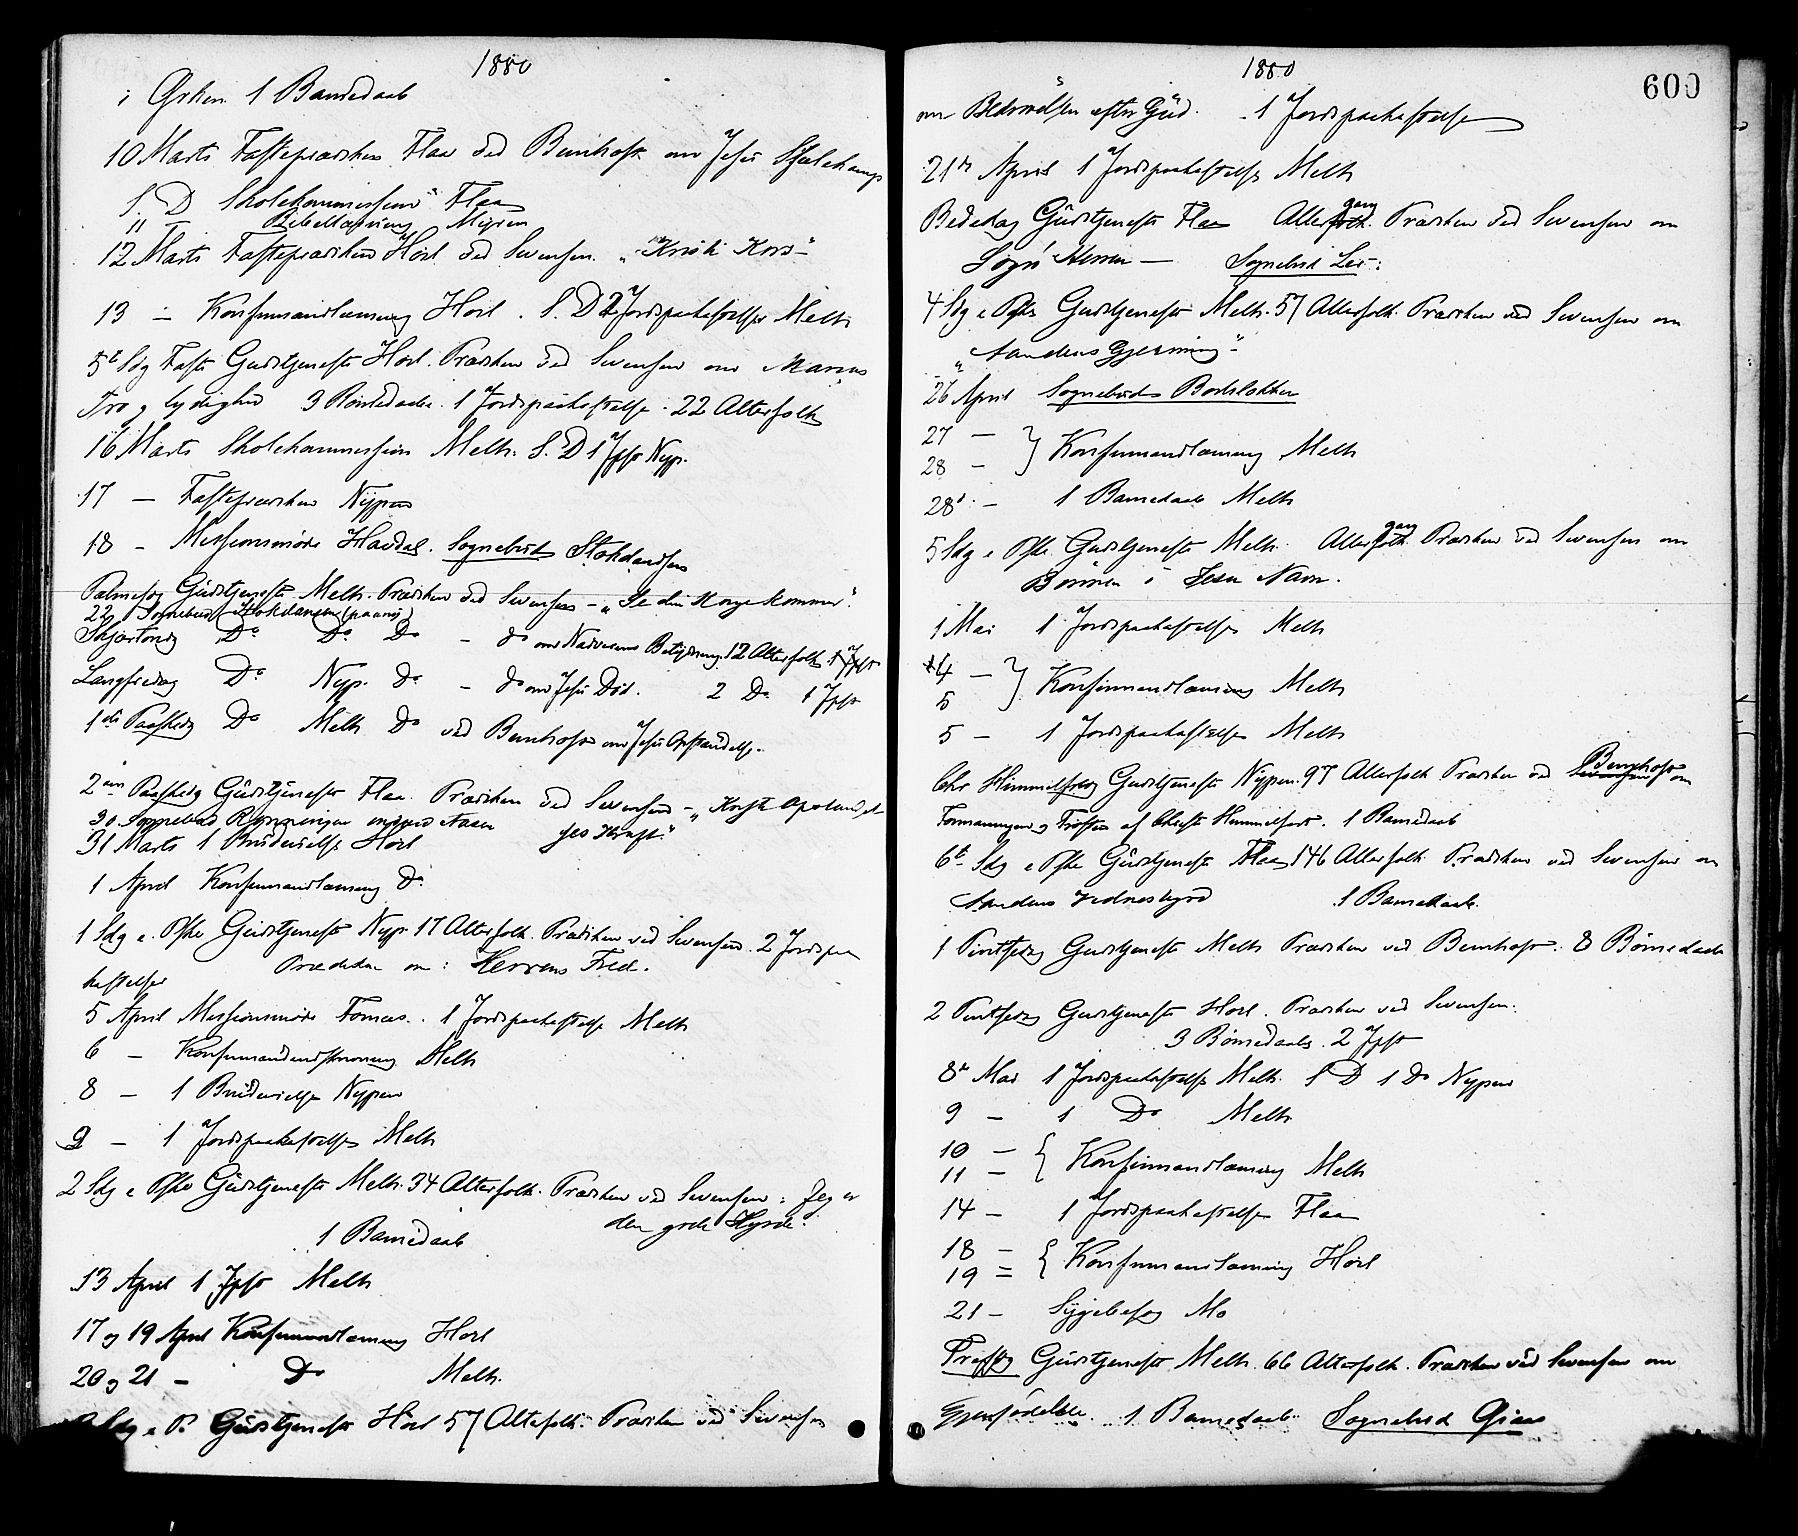 1880
i Ørken. 1 Barnedaab
10 Marts Fasteprædiken Flaa ved Bernhoft om Jesu Sjælekamp
S. D Skolekommission Flaa
11 — Bibellæsning
12 Marts Fasteprædiken Horl ved Svensen. "Kristi Kors"
13 — Konfirmandlæsning Horl. S. D 2 Jordpaakastelser Melh
5te Sdg Faste Gudstjeneste Horl. Prædiken ved Svensen om Marias
Tro og lydighed 3 Barnedaabe. 1 Jordpaakastelse. 22 Alterfolk
16 Marts Skolekommission Melh. S. D 1 Jpkst Nyp.
17 — Fasteprædiken Nypen
18 — Missionsmøde Havdal. Sognebud
Palmesøg Gudstjeneste Melh. Prædiken ved Svensen — "Se din Konge kommer".
22 Sognebud
Skjærtorsdg Do Do Do — do om Nadverens Betydning. 12 Alterfolk. 1 Jpkst
Langfredag Do Nyp. do — do om Jesu Død. 2 Do 1 Jpkst
1ste Paaskedg Do Melh Do ved Bernhoft om Jesu Opstandelse.
2den Paaskedg Gudstjeneste Flaa. Prædiken ved Svensen — "Kristi Opstandel
ses Kraft."
30 Sognebud
31 Marts 1 Brudevielse Horl
1 April Konfirmandlæsning Do
1 Sdg e. Pske Gudstjeneste Nyp. 17 Alterfolk. Prædiken ved Svensen. 2 Jordpaa
kastelser Prædiken om: Herrens Fred.
5 April Missionsmøde 1 Jordpaakastelse Melh
6 — Melh
8 — 1 Brudevielse Nypen
9 — 1 Jordpaakastelse Melh
2 Sdg e Pske Gudstjeneste Melh. 34 Alterfolk. Prædiken ved Svensen: Jeg er
den gode Hyrde.
1 Barnedaab
13 April 1 Jpkst Melh
17 og 19 April Konfirmandlæsning Horl
20 og 21 — Do Melh.
Sdg e P. Gudstjeneste Horl 57 Alterfolk. Prædiken ved Svensen
1880
600
om Bedrøvelsen efter Gud. 1 Jordpaakastelse
21de April 1 Jordpaakastelse Melh
Bededag Gudstjeneste Flaa Altergang. Prædiken ved Svensen om
Søger Herren — Sognebud Ler.
4 Sdg e Pske Gudstjeneste Melh. 57 Alterfolk. Prædiken ved Svensen om
"Aandens Gjerning".
26 April Sognebud
27 —
28 — } Konfirmandlæsning Melh
28d. — 1 Barnedaab Melh
5 Sdg e Pske. Gudstjeneste Melh. Altergang Prædiken ved Svensen om
Bønnen i Jesu Navn.
1 Mai 1 Jordpaakastelse Melh
4 —
5 } Konfirmandlæsning Melh
5 — 1 Jordpaakastelse Melh
Chr Himmelfartsdg Gudstjeneste Nypen. 97 Alterfolk Prædiken ved Bernhoft om
Formaningen og Trøsten af Christi Himmelfart. 1 Barnedaab
6te Sdg e Pske Gudstjeneste Flaa 146 Alterfolk. Prædiken ved Svensen om
Aandens Vidnesbyrd 1 Barnedaab.
1 Pintsedag Gudstjeneste Melh Prædiken ved Bernhoft. 8 Børnedaab
2 Pintsedag Gudstjeneste Horl. Prædiken ved Svensen.
3 Børnedaab. 2 Jpkst
8de Mai 1 Jordpaakastelse Melh. S D 1 Do Nypen
9 — 1 Do Melh
10 —
11 — { Konfirmandlæsning Melh
14 — 1 Jordpaakastelse Flaa
18 —
19 = { Konfirmandlæsning Horl
21 — Sygebesøg Mo
Trefsdg Gudstjeneste Melh. 66 Alterfolk. Prædiken ved Svensen om
Gjenfødelse. 1 Barnedaab. Sognebud